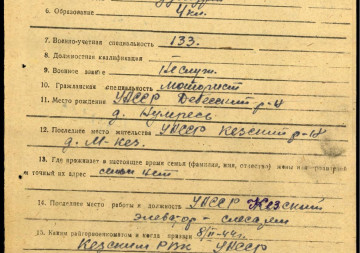 6. Образование 4 кл.
7. Военно-учетная специальность 133.
8. Должностная квалификация
9. Военное звание Неслуж.
10. Гражданская специальность моторист
11. Место рождения УАССР Дебесский р-н
д.
12. Последнее место жительства УАССР Кезский р-н
д. М-Кез.
13. Где проживает в настоящее время семья (фамилия, имя, отчество) жены или родителей
и точный их адрес семьи нет
14. Последнее место работы и должность УАССР Кезский
элеватор - слесарь
15. Каким райгорвоенкоматом и когда призван 8/II-44 г.
Кезским РВК УАССР